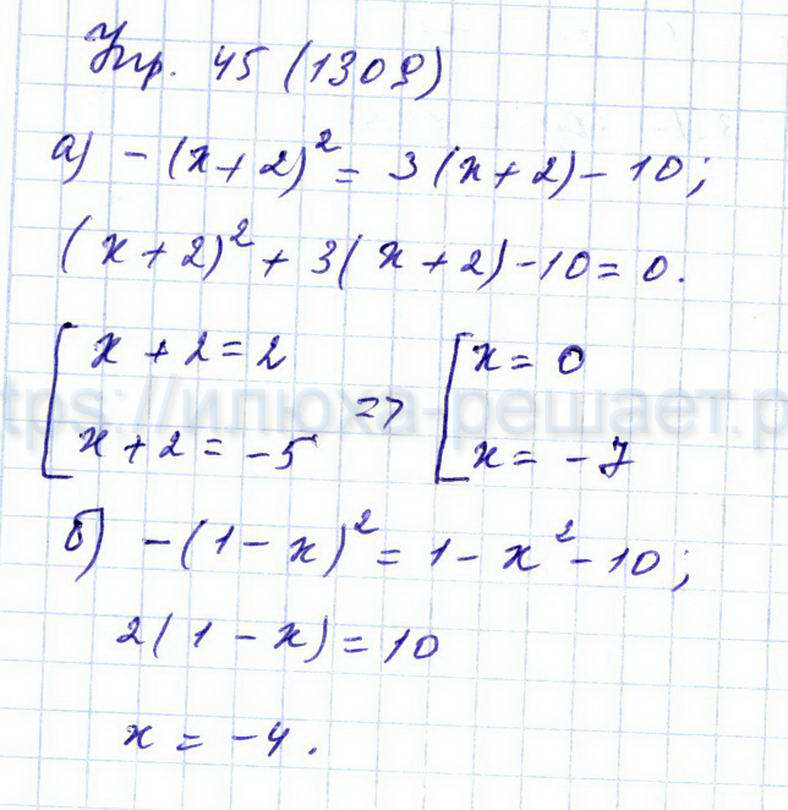 Упр. 45 (1309)
а) -(x+2)² = 3(x+2)-10;
(x+2)² + 3(x+2)-10=0.
[x+2=2 => [x=0
x+2=-5 x=-7
tps://илюха-решает.р
б) -(1-x)² = 1-x²-10;
2(1-x)=10
x=-4.